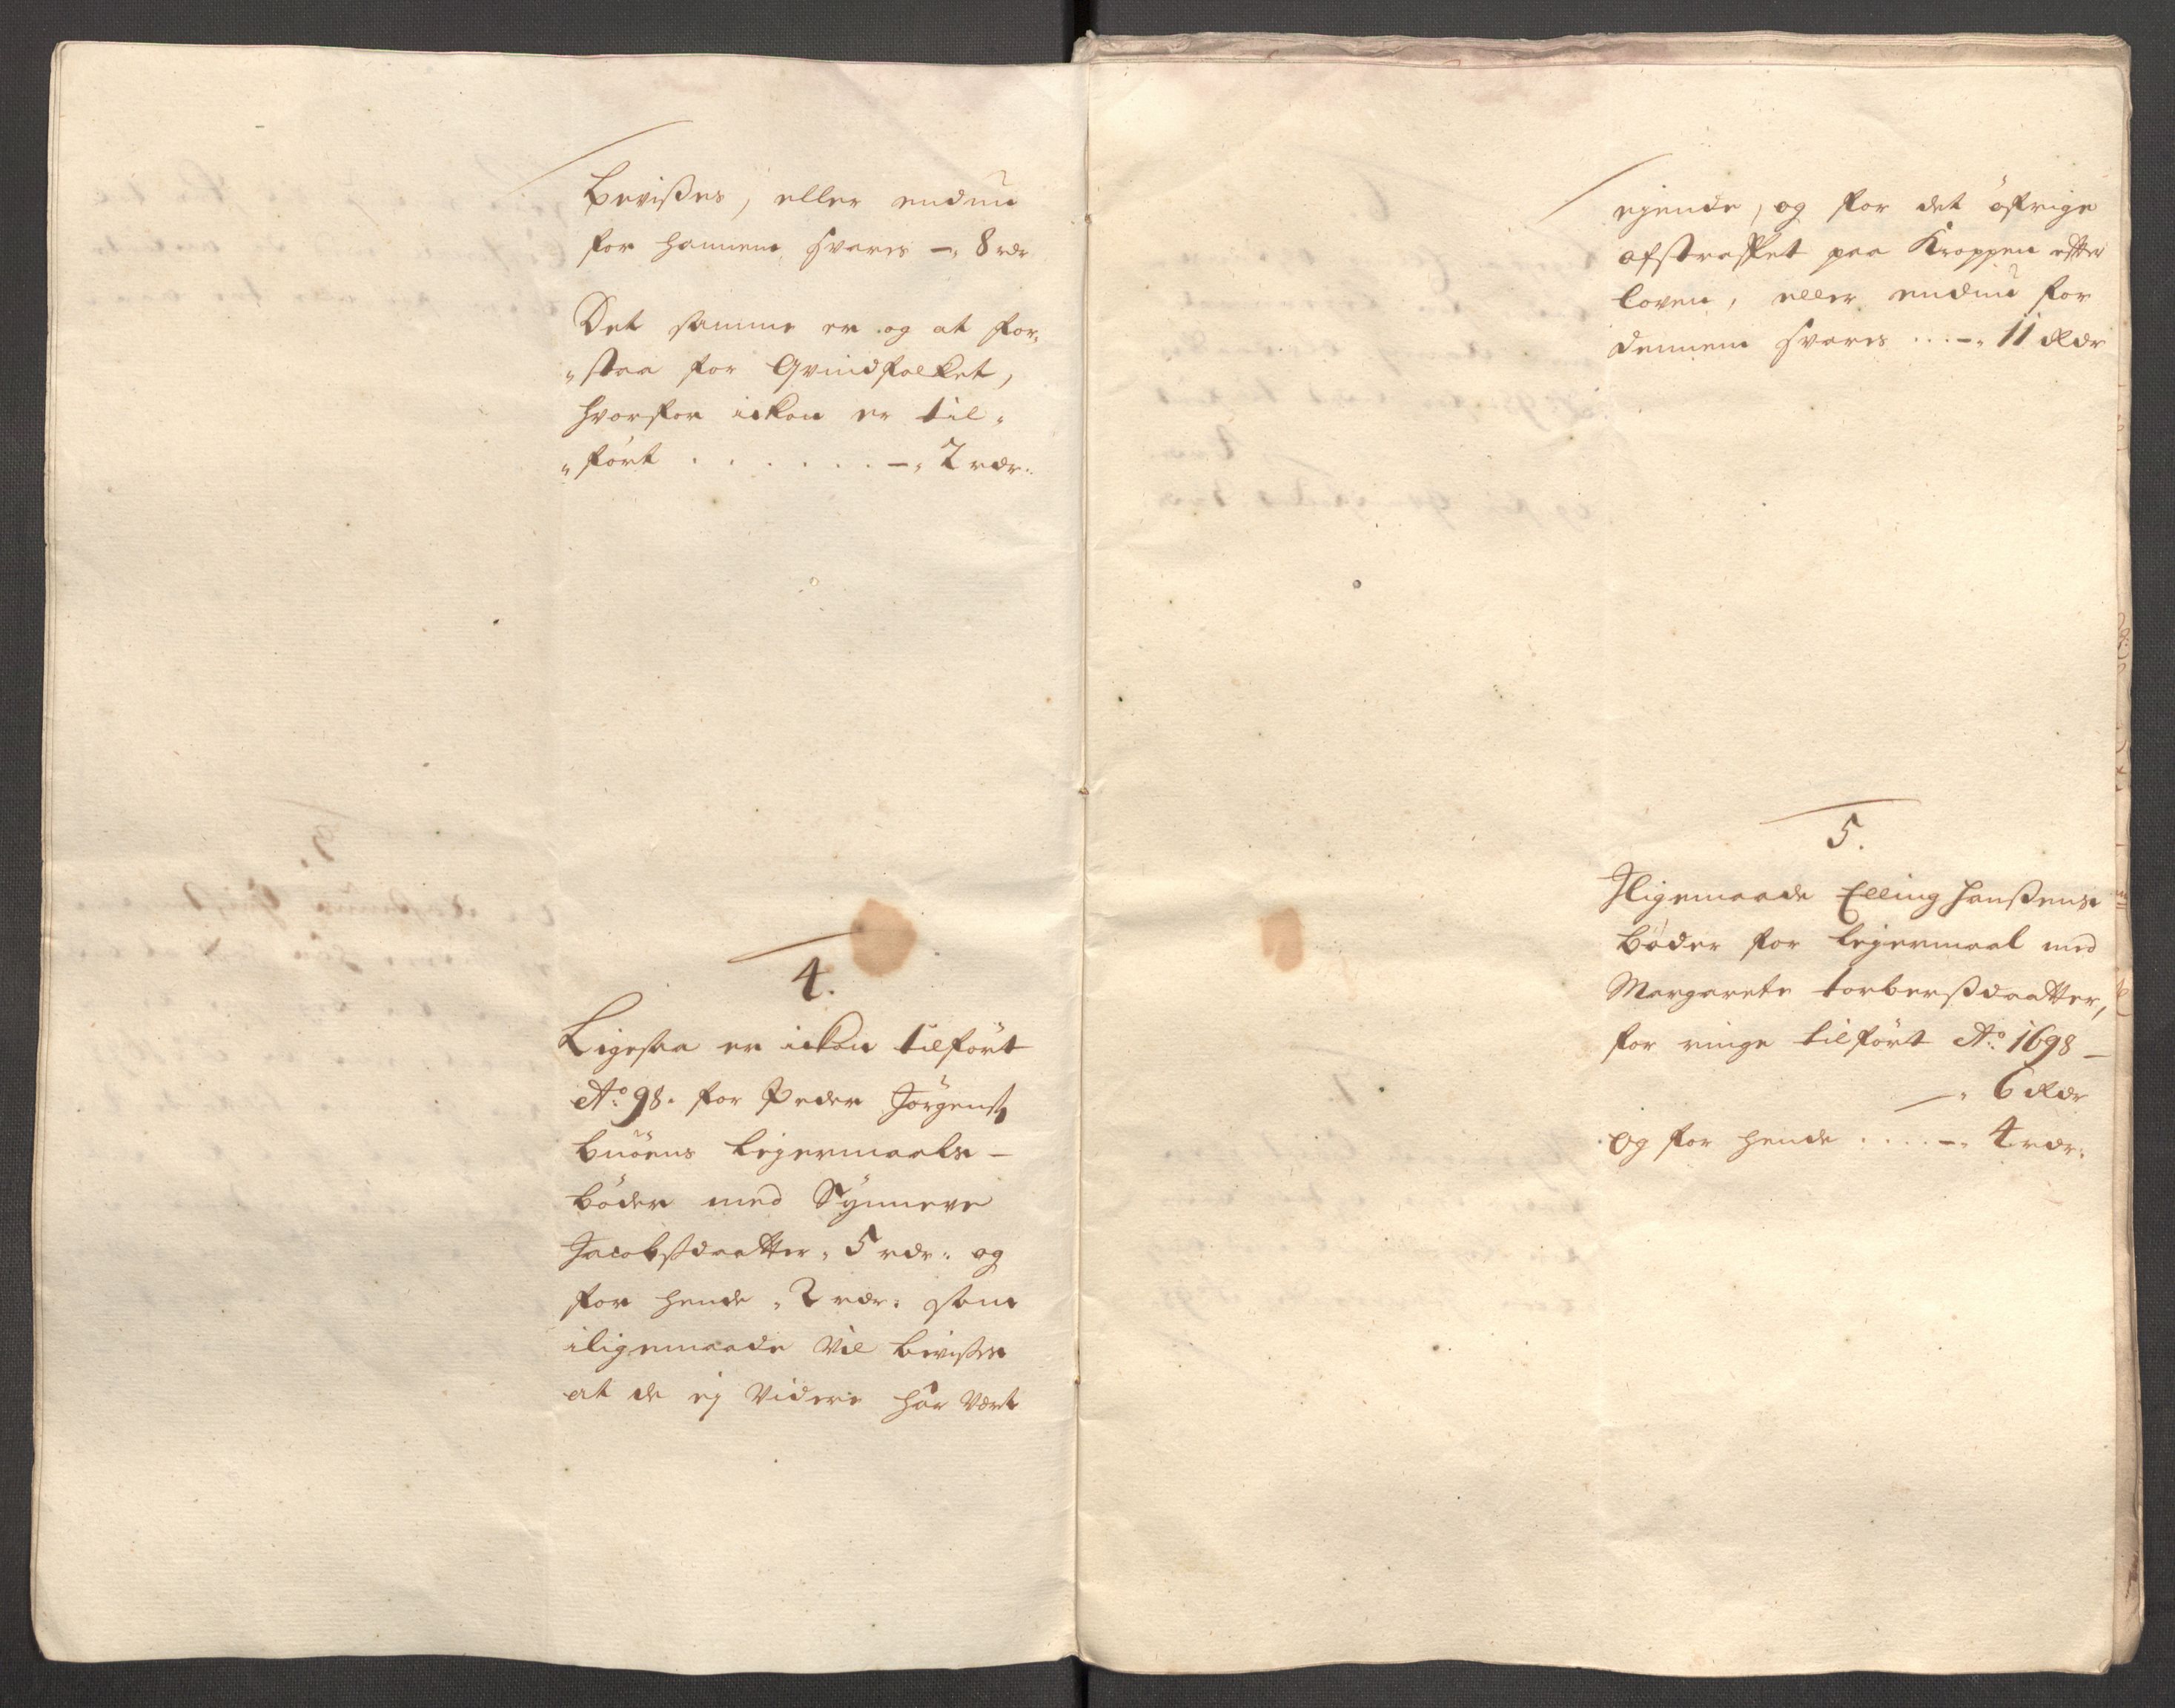 bevißes, eller endnu
for hannem svares –„ 8 rdr
Det samme er og at for„
„staa for Qvindfolket,
hvorfor ickon er til„
„ført . . . . . . . –„ 2 rdr:
4.
Ligesaa er ickon tilført
Ao: 98. for Peder Jørgens:
buöens Lejermaals –
bøder med Synneve
Jacobsdaatter„ 5 rdr: og
for hende„ 2 rdr: som
iligemaade vil bevises
at de ej videre har vært
ejende, og for det öfrige
afstraffet paa Kroppen effter
loven, eller endnu for
dennem svares ...–„ 11 Rdr
5.
Iligemaade Elling Hanßens
bøder for Lejermaal med
Margarete torbersdaatter,
for ringe tilført Ao: 1698 –
–„ 6 Rdr
og for hende ....–„ 4 rdr: